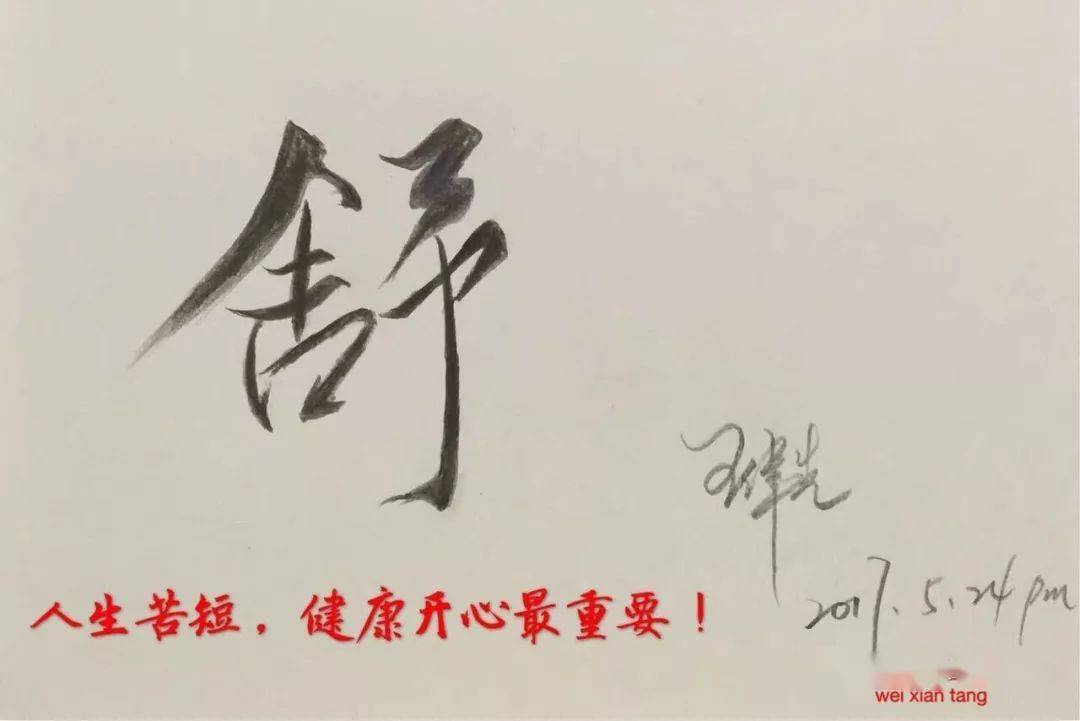 舒
王偉先
2017.5.24 pm
人生苦短，健康开心最重要！
wei xian tang